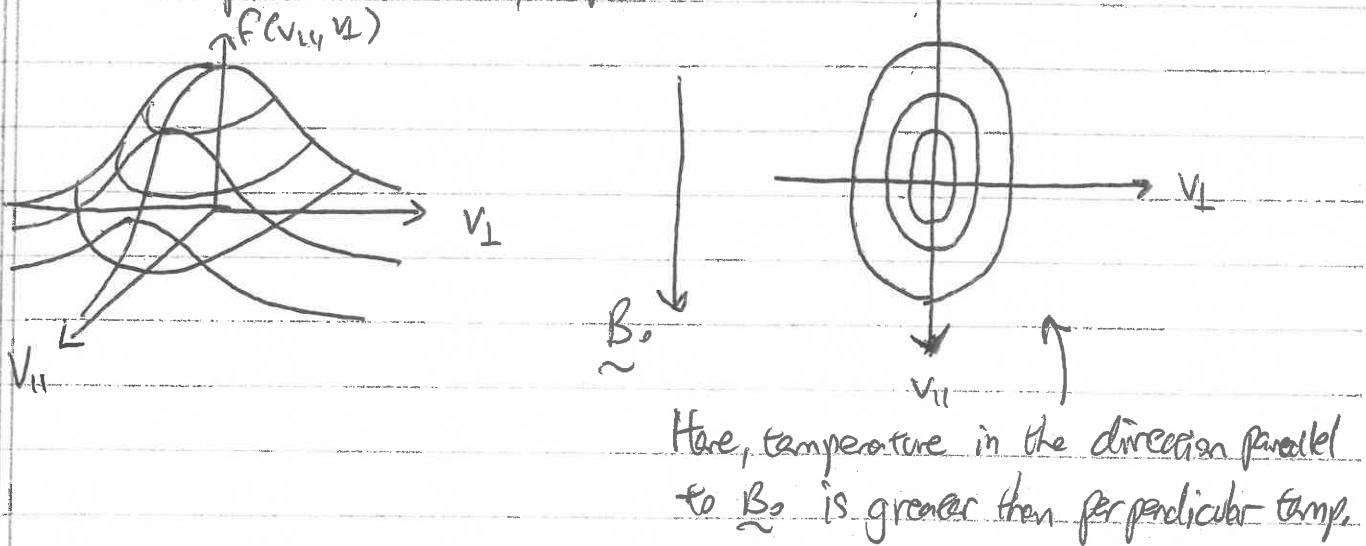 f(v₁₁, v⊥)
V⊥
V₁₁
B₀
V⊥
V₁₁
Here, temperature in the direction parallel
to B₀ is greater than perpendicular temp.